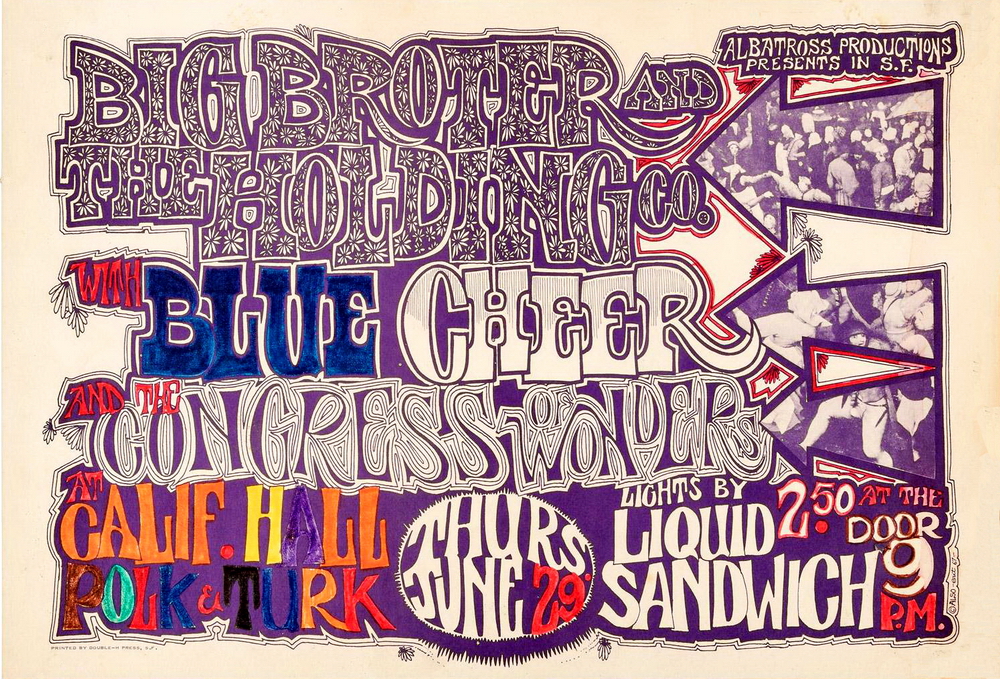 ALBATROSS PRODUCTIONS
PRESENTS IN S.F.
BIG BROTER AND
THE HOLDING CO.
WITH BLUE CHEER
AND THE CONGRESS OF WONDERS
AT CALIF. HALL
POLK & TURK
THURS
JUNE 29
LIGHTS BY
LIQUID
SANDWICH
2.50 AT THE
DOOR
9
P.M.
PRINTED BY DOUBLE-H PRESS, S.F.